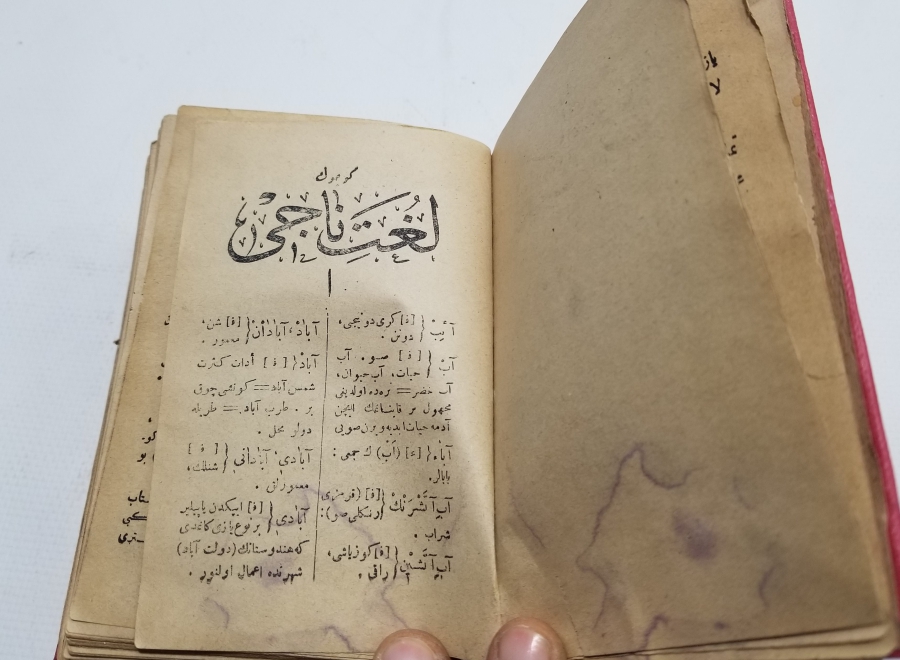 كوچوك
لُغَتِ نَاجِی
ا
آئِبْ { [ع] كری دونیجی،
دونن .
آبْ { [ف] صو . آب
حیات، آب حیوان،
آب خضر = نره‌ده اولدیغی
مجهول بر قاینماقدن ایچن
آدمه حیات ابدیه ویرن صویی
آباء { [ع] (اَبْ) ك جمعی :
بابالر.
آبِ آتَشْرَنْكْ { [ف] (قرمزی
رنكلی صو) :
شراب .
آبِ آتَشْین { [ف] كوزیاشی،
راقی .
آبادْ، آبادَانْ { [ف] شن،
معمور .
آبادْ { [ف] أدات كثرت
شمس آباد = كونشی چوق
یر . طرب آباد = طربله
دولو محل .
آبادی، آبادانی { [ف]
شنلك،
معمورلق .
آبادی { [ف] ایپكدن یاپیلیر
بر نوع یازی كاغدی
كه هندوستانك (دولت آباد)
شهرنده اعمال اولنور .